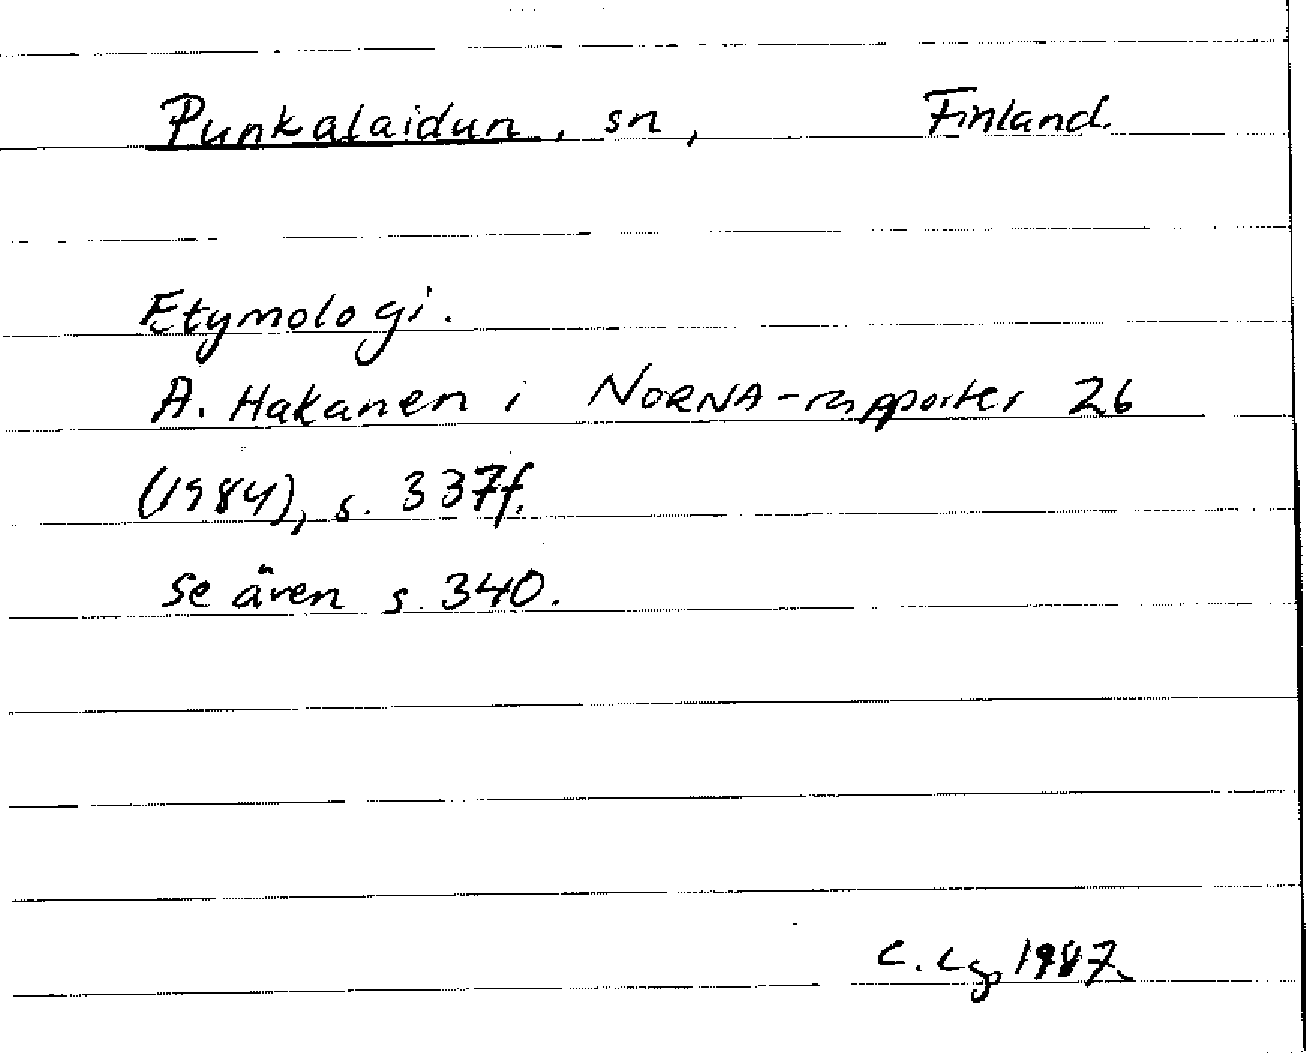 Punkalaidun, sn, Finland.
Etymologi.
A. Hakanen i NORNA-rapporter 26
(1984), s. 337f.
Se även s. 340.
C. Lg, 1987.